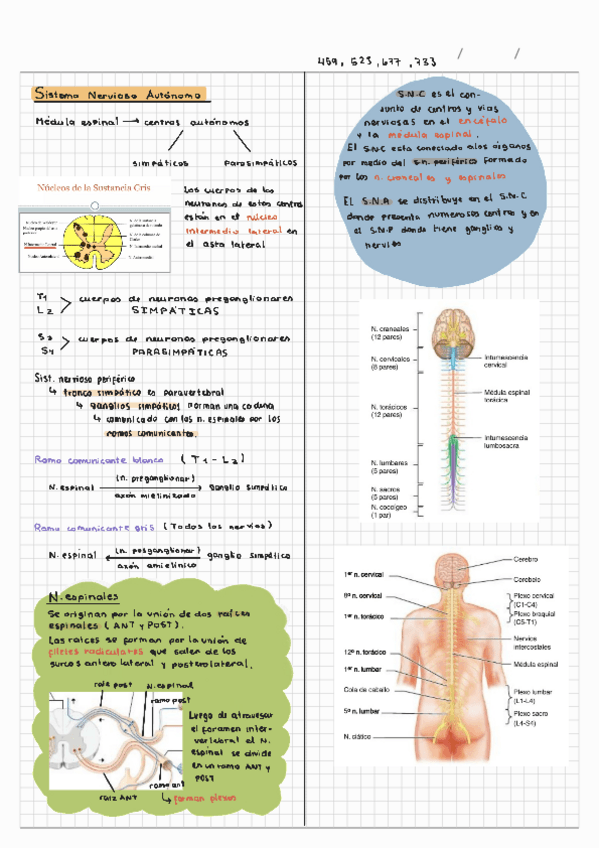 459, 523, 677, 733
Sistema Nervioso Autónomo
Médula espinal → centros autónomos
simpáticos parasimpáticos
Núcleos de la Sustancia Gris
Los cuerpos de las
neuronas de estos centros
están en el núcleo
intermedio lateral en
el asta lateral
T1
L2
cuerpos de neuronas preganglionares
SIMPÁTICAS
S2
S4
cuerpos de neuronas preganglionares
PARASIMPÁTICAS
Sist. nervioso periférico
↳ tronco simpático es paravertebral
↳ ganglios simpáticos forman una cadena
↳ comunicado con los n. espinales por los
ramos comunicantes.
Ramo comunicante blanco (T1 - L2)
N. espinal (n. preganglionar) ganglio simpático
axón mielinizado
Ramo comunicante gris (Todos los nervios)
N. espinal (n. posganglionar) ganglio simpático
axón amielínico
N. espinales
Se originan por la unión de dos raíces
espinales (ANT y POST).
Las raíces se forman por la unión de
fileres radiculares que salen de los
surcos anterolateral y posterolateral.
raíz post N. espinal
ramo post
Luego de atravesar
el foramen inter-
vertebral el N.
espinal se divide
en un ramo ANT y
POST
ramo ant
raíz ANT ↳ forman plexos
S.N.C es el con-
junto de centros y vías
nerviosas en el encéfalo
y la médula espinal.
El SNC esta conectado a los órganos
por medio del s.n. periférico formado
por los n. craneales y espinales
El S.N.A se distribuye en el S.N.C
donde presenta numerosos centros y en
el S.N.P donde tiene ganglios y
nervios
N. craneales
(12 pares)
N. cervicales
(8 pares)
Intumescencia
cervical
N. torácicos
(12 pares)
Médula espinal
torácica
Intumescencia
lumbosacra
N. lumbares
(5 pares)
N. sacros
(5 pares)
N. coccígeo
(1 par)
Cerebro
1er n. cervical
Cerebelo
8º n. cervical
Plexo cervical
(C1-C4)
1er n. torácico
Plexo braquial
(C5-T1)
Nervios
intercostales
12º n. torácico
Médula espinal
1er n. lumbar
Cola de caballo
Plexo lumbar
(L1-L4)
5º n. lumbar
Plexo sacro
(L4-S4)
N. ciático